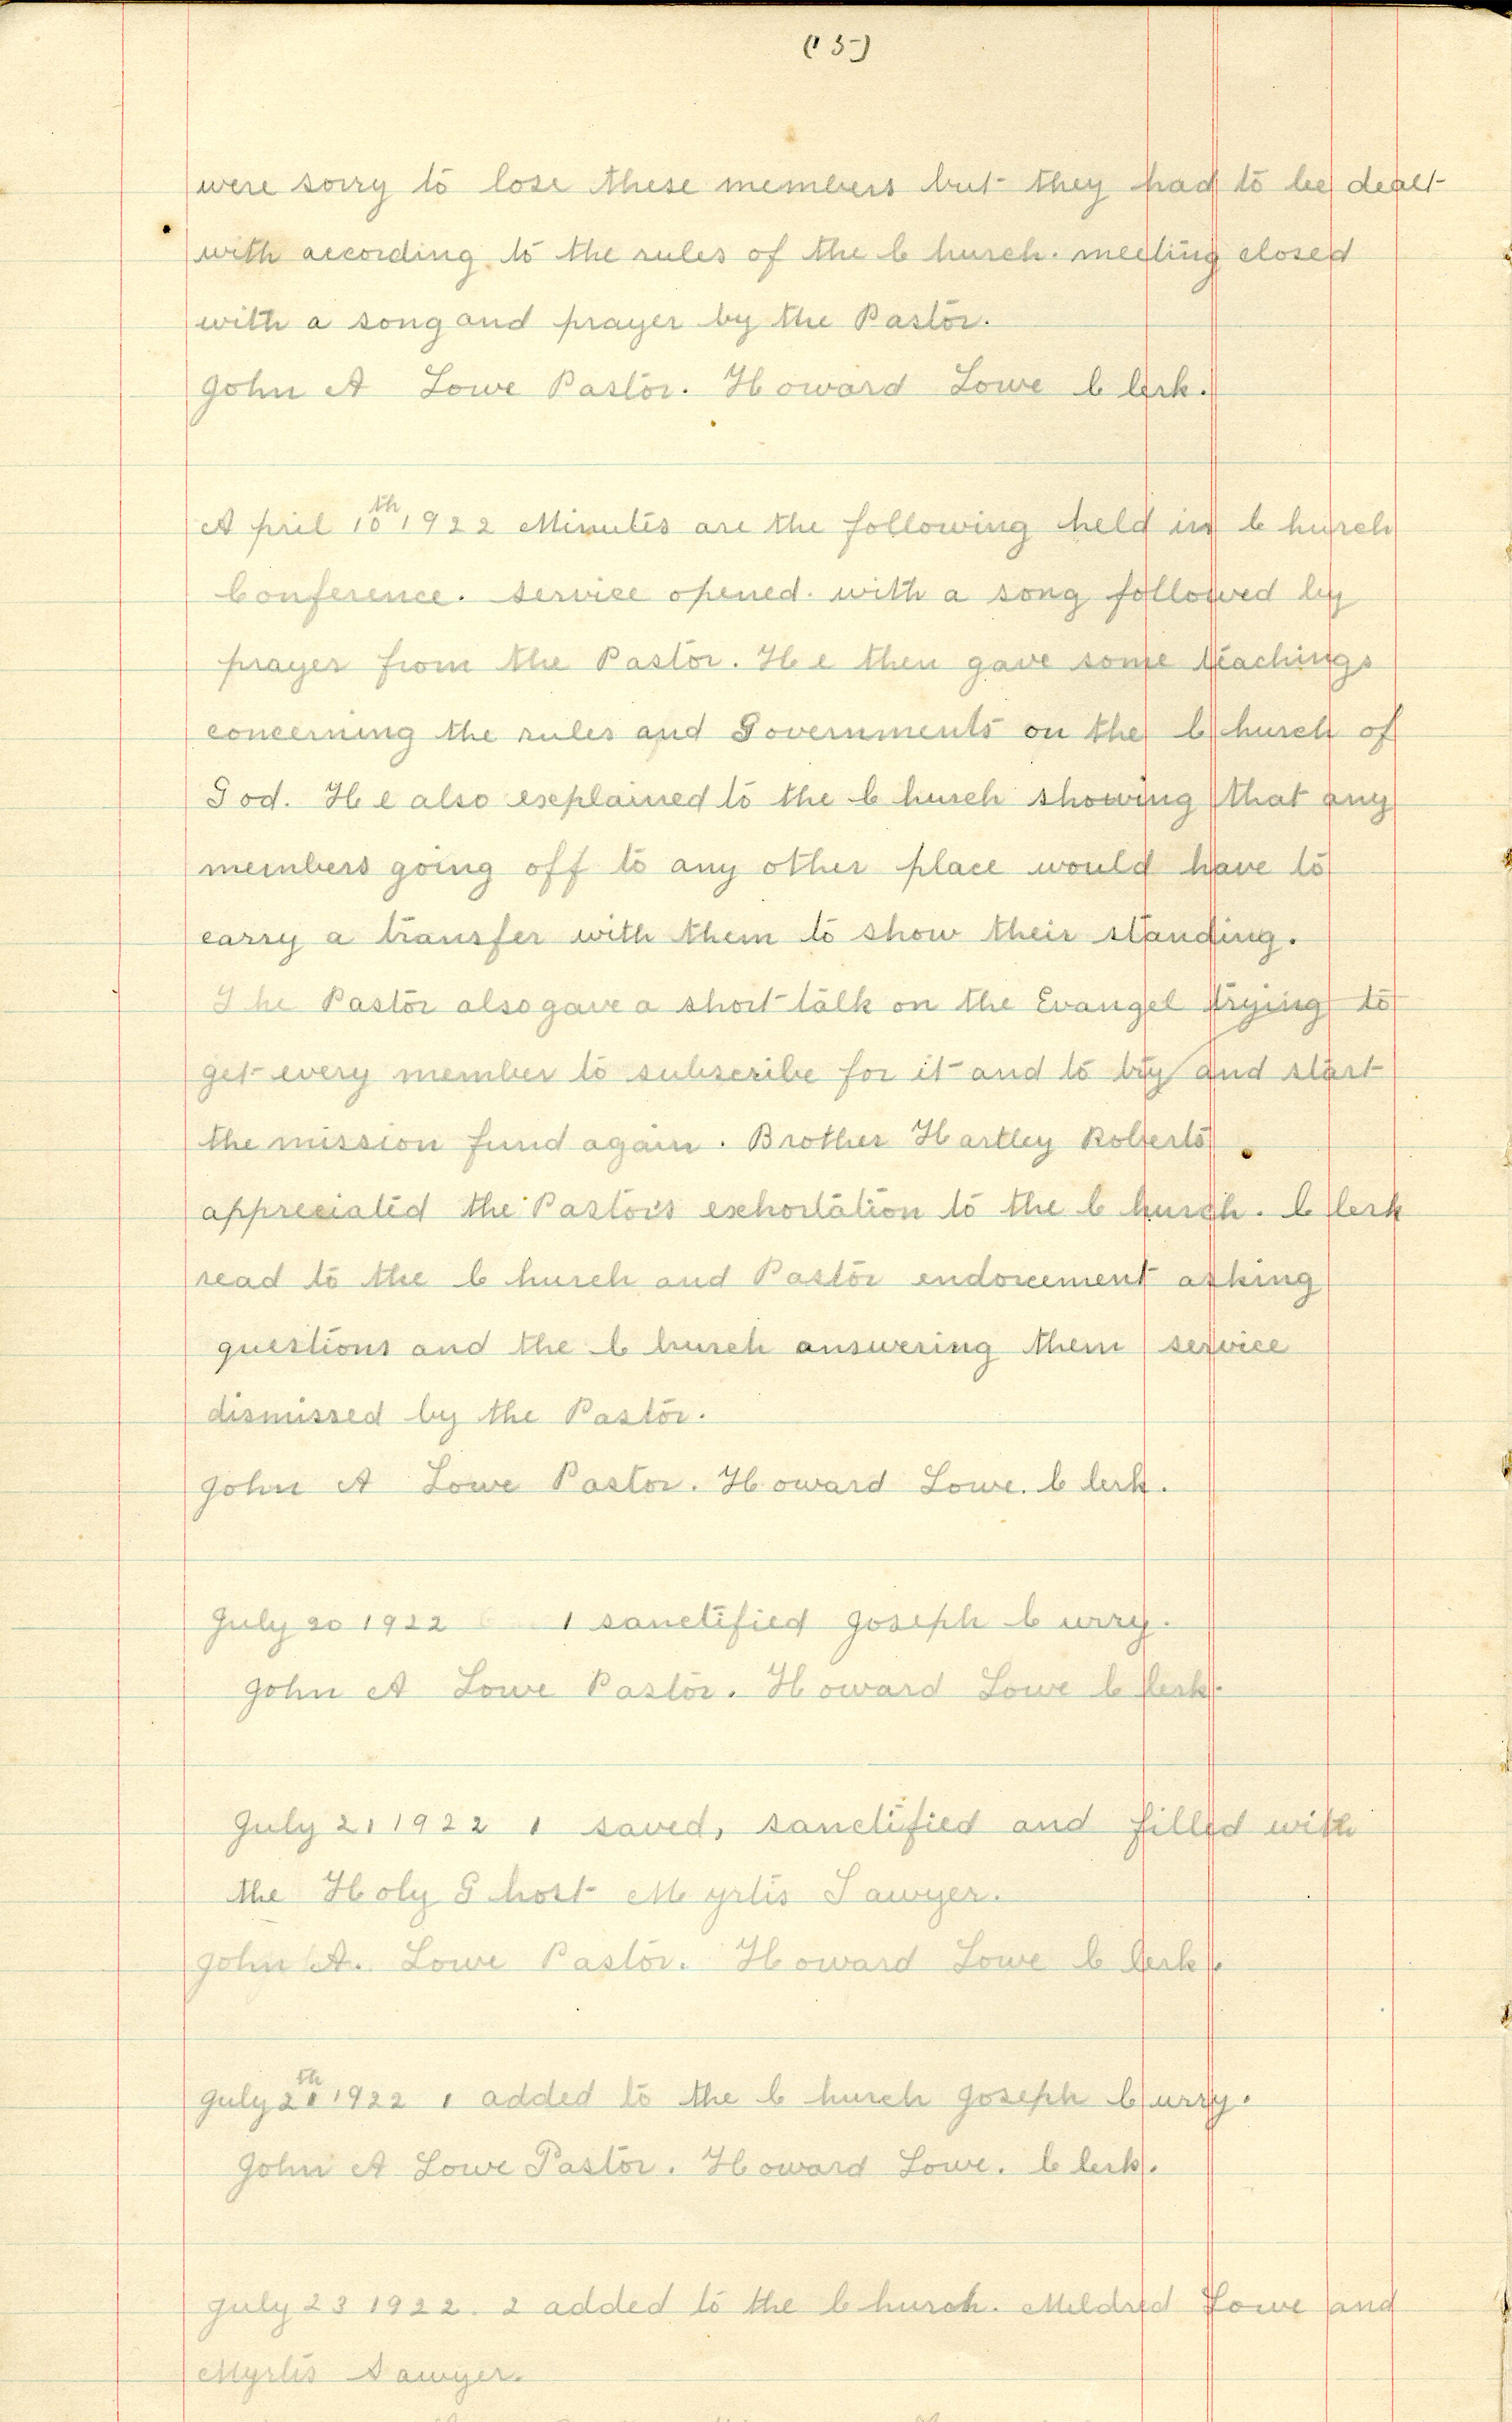 (15)
were sorry to lose these members but they had to be dealt
with according to the rules of the Church. meeting closed
with a song and prayer by the Pastor.
John A Lowe Pastor. Howard Lowe Clerk.
April 10th 1922 Minutes are the following held in Church
Conference. service opened. with a song followed by
prayer from the Pastor. He then gave some teachings
concerning the rules and Governments on the Church of
God. He also explained to the Church showing that any
members going off to any other place would have to
carry a transfer with them to show their standing.
The Pastor also gave a short talk on the Evangel trying to
get every member to subscribe for it and to try and start
the mission fund again. Brother Hartley Roberts
appreciated the Pastors exhortation to the Church. Clerk
read to the Church and Pastor endorcement asking
questions and the Church answering them service
dismissed by the Pastor.
John A Lowe Pastor. Howard Lowe. Clerk.
July 20 1922 1 sanctified Joseph Curry.
John A Lowe Pastor. Howard Lowe Clerk.
July 21 1922 1 saved, sanctified and filled with
the Holy Ghost Myrtis Sawyer.
John A. Lowe Pastor. Howard Lowe Clerk.
July th 1922 1 added to the Church Joseph Curry.
John A Lowe Pastor. Howard Lowe. Clerk.
July 23 1922. 2 added to the Church. Mildred Lowe and
Myrtis Sawyer.